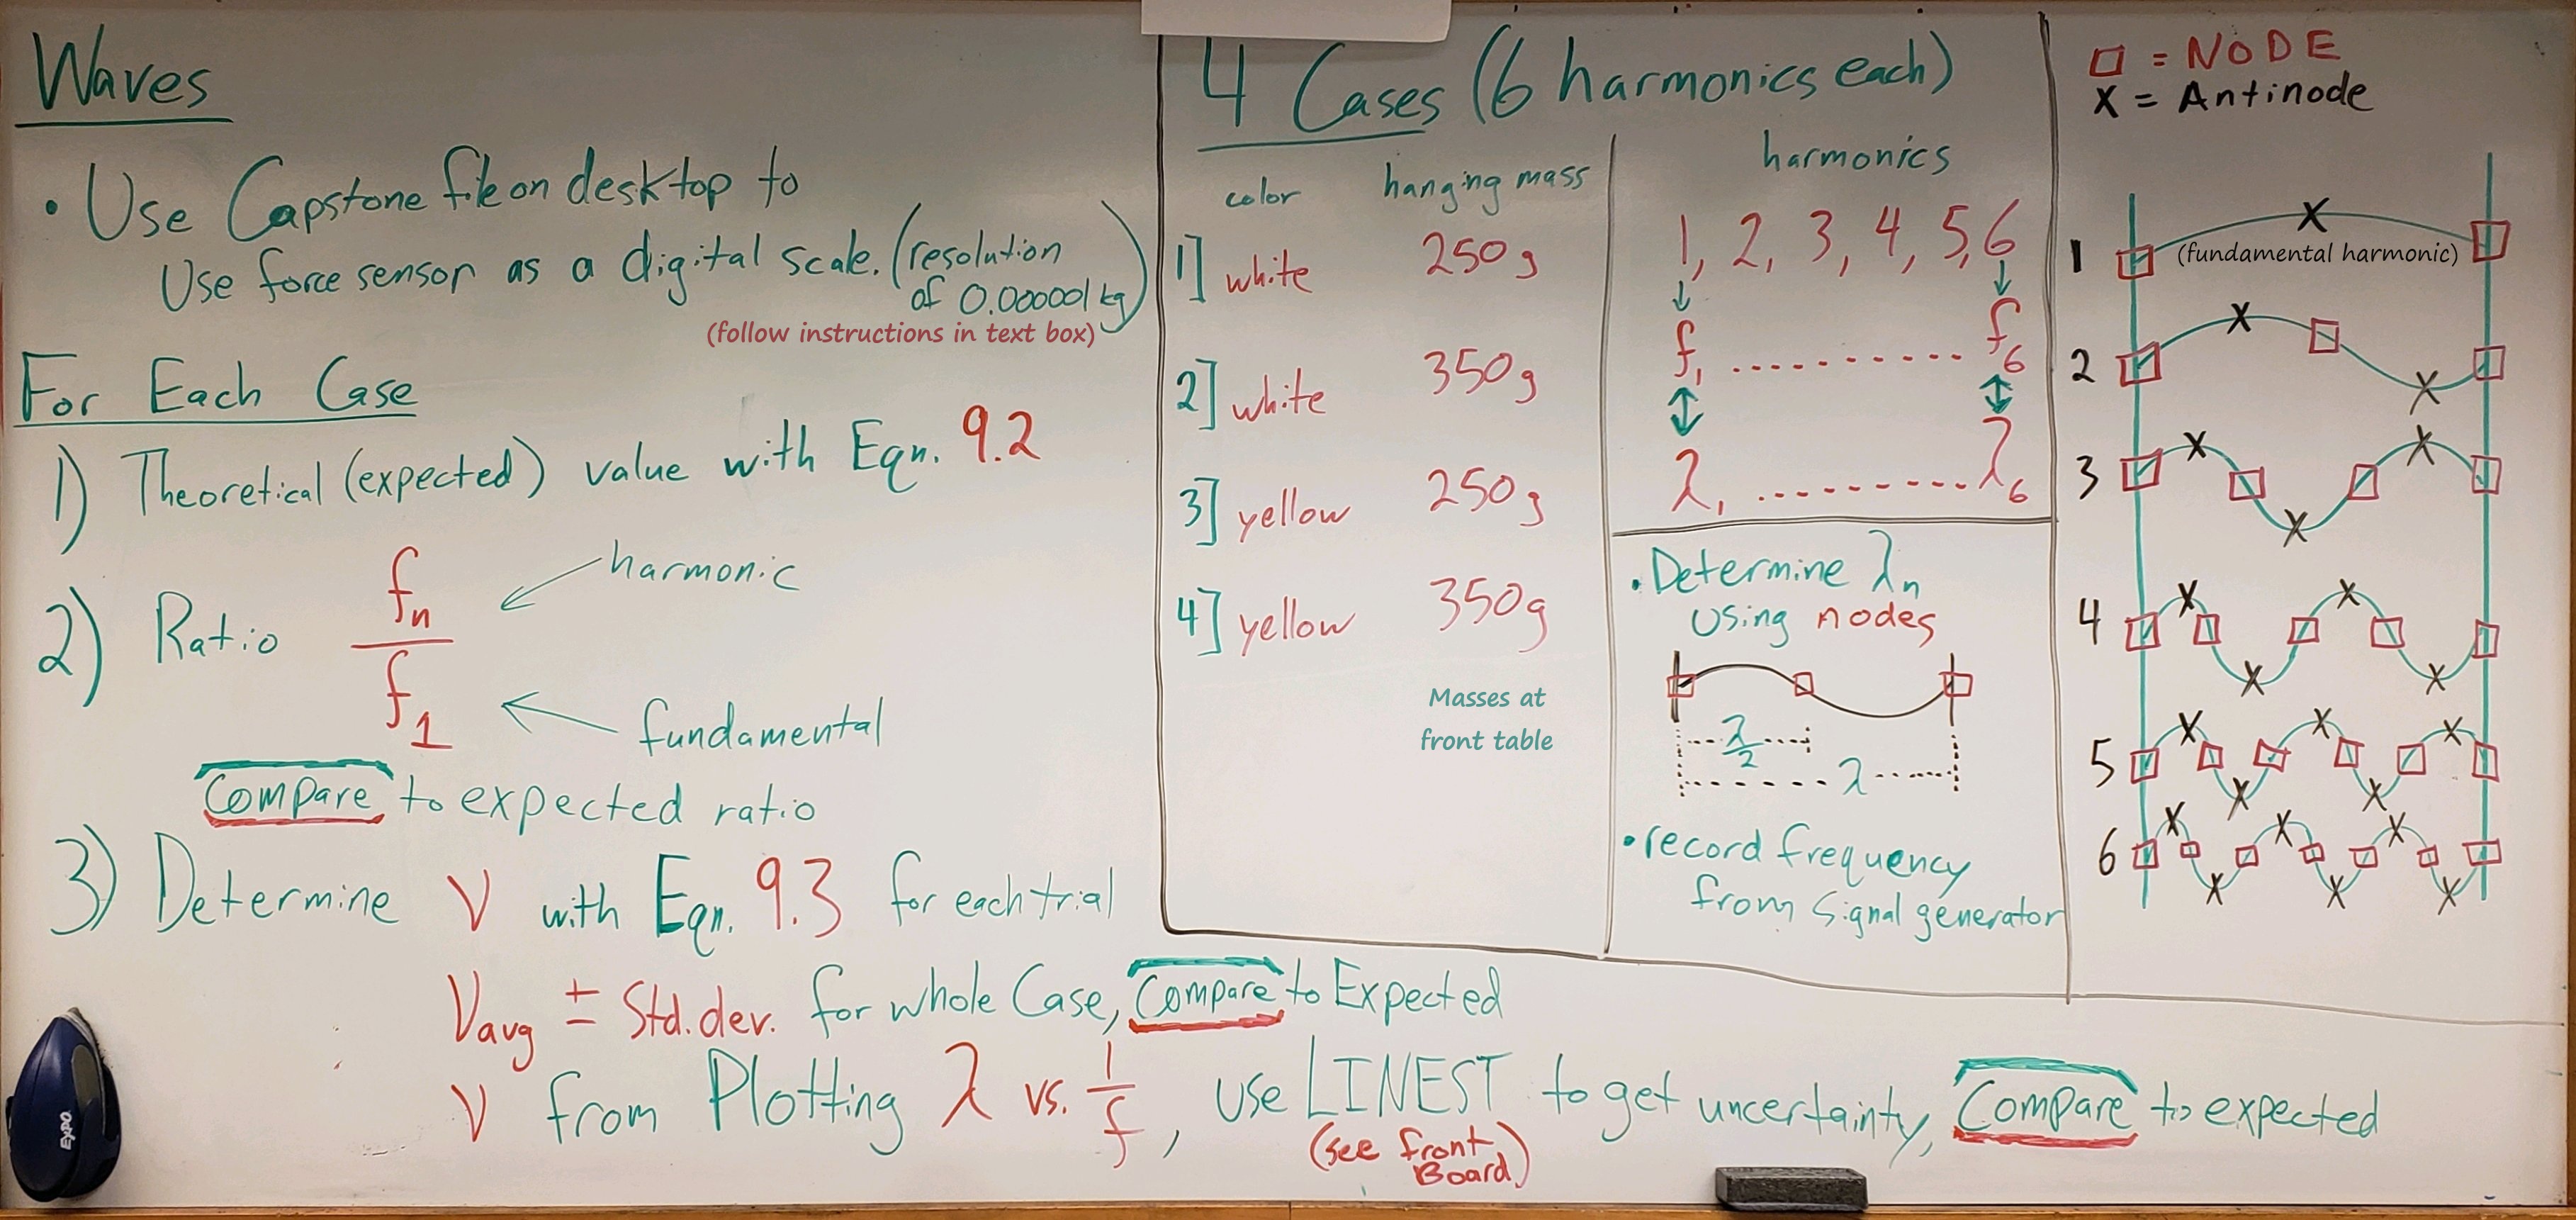 Waves
• Use Capstone file on desktop to
Use force sensor as a digital scale. (resolution
of 0.00001 kg)
(follow instructions in text box)
For Each Case
1) Theoretical (expected) value with Eqn. 9.2
2) Ratio fn / f1
harmonic
fundamental
Compare to expected ratio
3) Determine V with Eqn. 9.3 for each trial
Vavg ± Std.dev. for whole Case, Compare to Expected
V from Plotting λ vs. 1/f, use LINEST to get uncertainty, Compare to expected
(see front
Board)
EXPO
4 Cases (6 harmonics each)
color hanging mass
1] white 250g
2] white 350g
3] yellow 250g
4] yellow 350g
Masses at
front table
harmonics
1, 2, 3, 4, 5, 6
↓ ↓
f1 .......... f6
↕ ↕
λ1 .......... λ6
• Determine λn
using nodes
λ/2
λ
• record frequency
from signal generator
□ = NODE
X = Antinode
1 (fundamental harmonic)
2
3
4
5
6